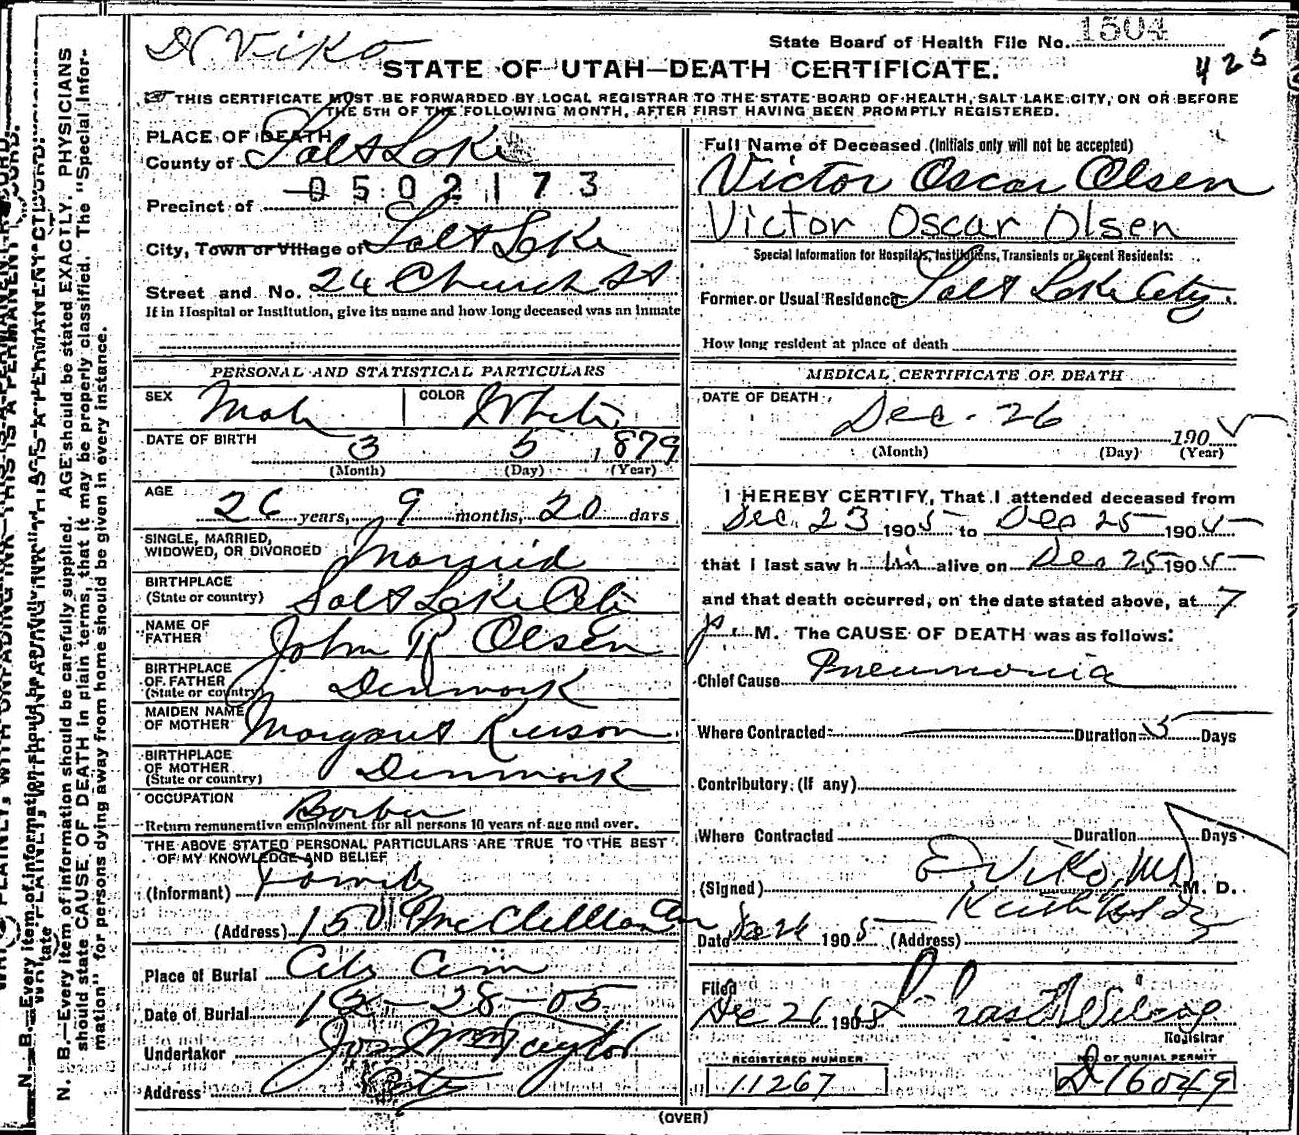 Dr Viko
State Board of Health File No. 1504
425
STATE OF UTAH—DEATH CERTIFICATE.
THIS CERTIFICATE MUST BE FORWARDED BY LOCAL REGISTRAR TO THE STATE BOARD OF HEALTH, SALT LAKE CITY, ON OR BEFORE
THE 5TH OF THE FOLLOWING MONTH, AFTER FIRST HAVING BEEN PROMPTLY REGISTERED.
PLACE OF DEATH
County of Salt Lake
0502173
Precinct of
City, Town or Village of Salt Lake
Street and No. 24 Church St
If in Hospital or Institution, give its name and how long deceased was an inmate
Full Name of Deceased (Initials only will not be accepted)
Victor Oscar Olsen
Victor Oscar Olsen
Special Information for Hospitals, Institutions, Transients or Recent Residents:
Former or Usual Residence Salt Lake City
How long resident at place of death
PERSONAL AND STATISTICAL PARTICULARS
SEX Male COLOR White
DATE OF BIRTH 3 5 1879
(Month) (Day) (Year)
AGE 26 years, 9 months, 20 days
SINGLE, MARRIED,
WIDOWED, OR DIVORCED Married
BIRTHPLACE
(State or country) Salt Lake City
NAME OF
FATHER John R Olsen
BIRTHPLACE
OF FATHER
(State or country) Denmark
MAIDEN NAME
OF MOTHER Margaret
BIRTHPLACE
OF MOTHER
(State or country) Denmark
OCCUPATION Barber
Return remunerative employment for all persons 10 years of age and over.
THE ABOVE STATED PERSONAL PARTICULARS ARE TRUE TO THE BEST
OF MY KNOWLEDGE AND BELIEF
(Informant) Family
(Address) 150 McClelland
Place of Burial City Cem
Date of Burial 12-28-05
Undertaker Jos Wm Taylor
Address City
MEDICAL CERTIFICATE OF DEATH
DATE OF DEATH Dec. 26 1905
(Month) (Day) (Year)
I HEREBY CERTIFY, That I attended deceased from
Dec. 23 1905 to Dec 25 1905
that I last saw him alive on Dec 25 1905
and that death occurred, on the date stated above, at 7
p. M. The CAUSE OF DEATH was as follows:
Chief Cause Pneumonia
Where Contracted Duration 5 Days
Contributory (If any)
Where Contracted Duration Days
(Signed) E Viko MD M. D.
Date Dec 26 1905 (Address) Keith Bldg
Filed
Dec 26 1905
Registrar
REGISTERED NUMBER
11267
NO. OF BURIAL PERMIT
D16049
(OVER)
N. B.—Every item of information should be carefully supplied. AGE should be stated EXACTLY. PHYSICIANS
should state CAUSE OF DEATH in plain terms, that it may be properly classified. The "Special Infor-
mation" for persons dying away from home should be given in every instance.